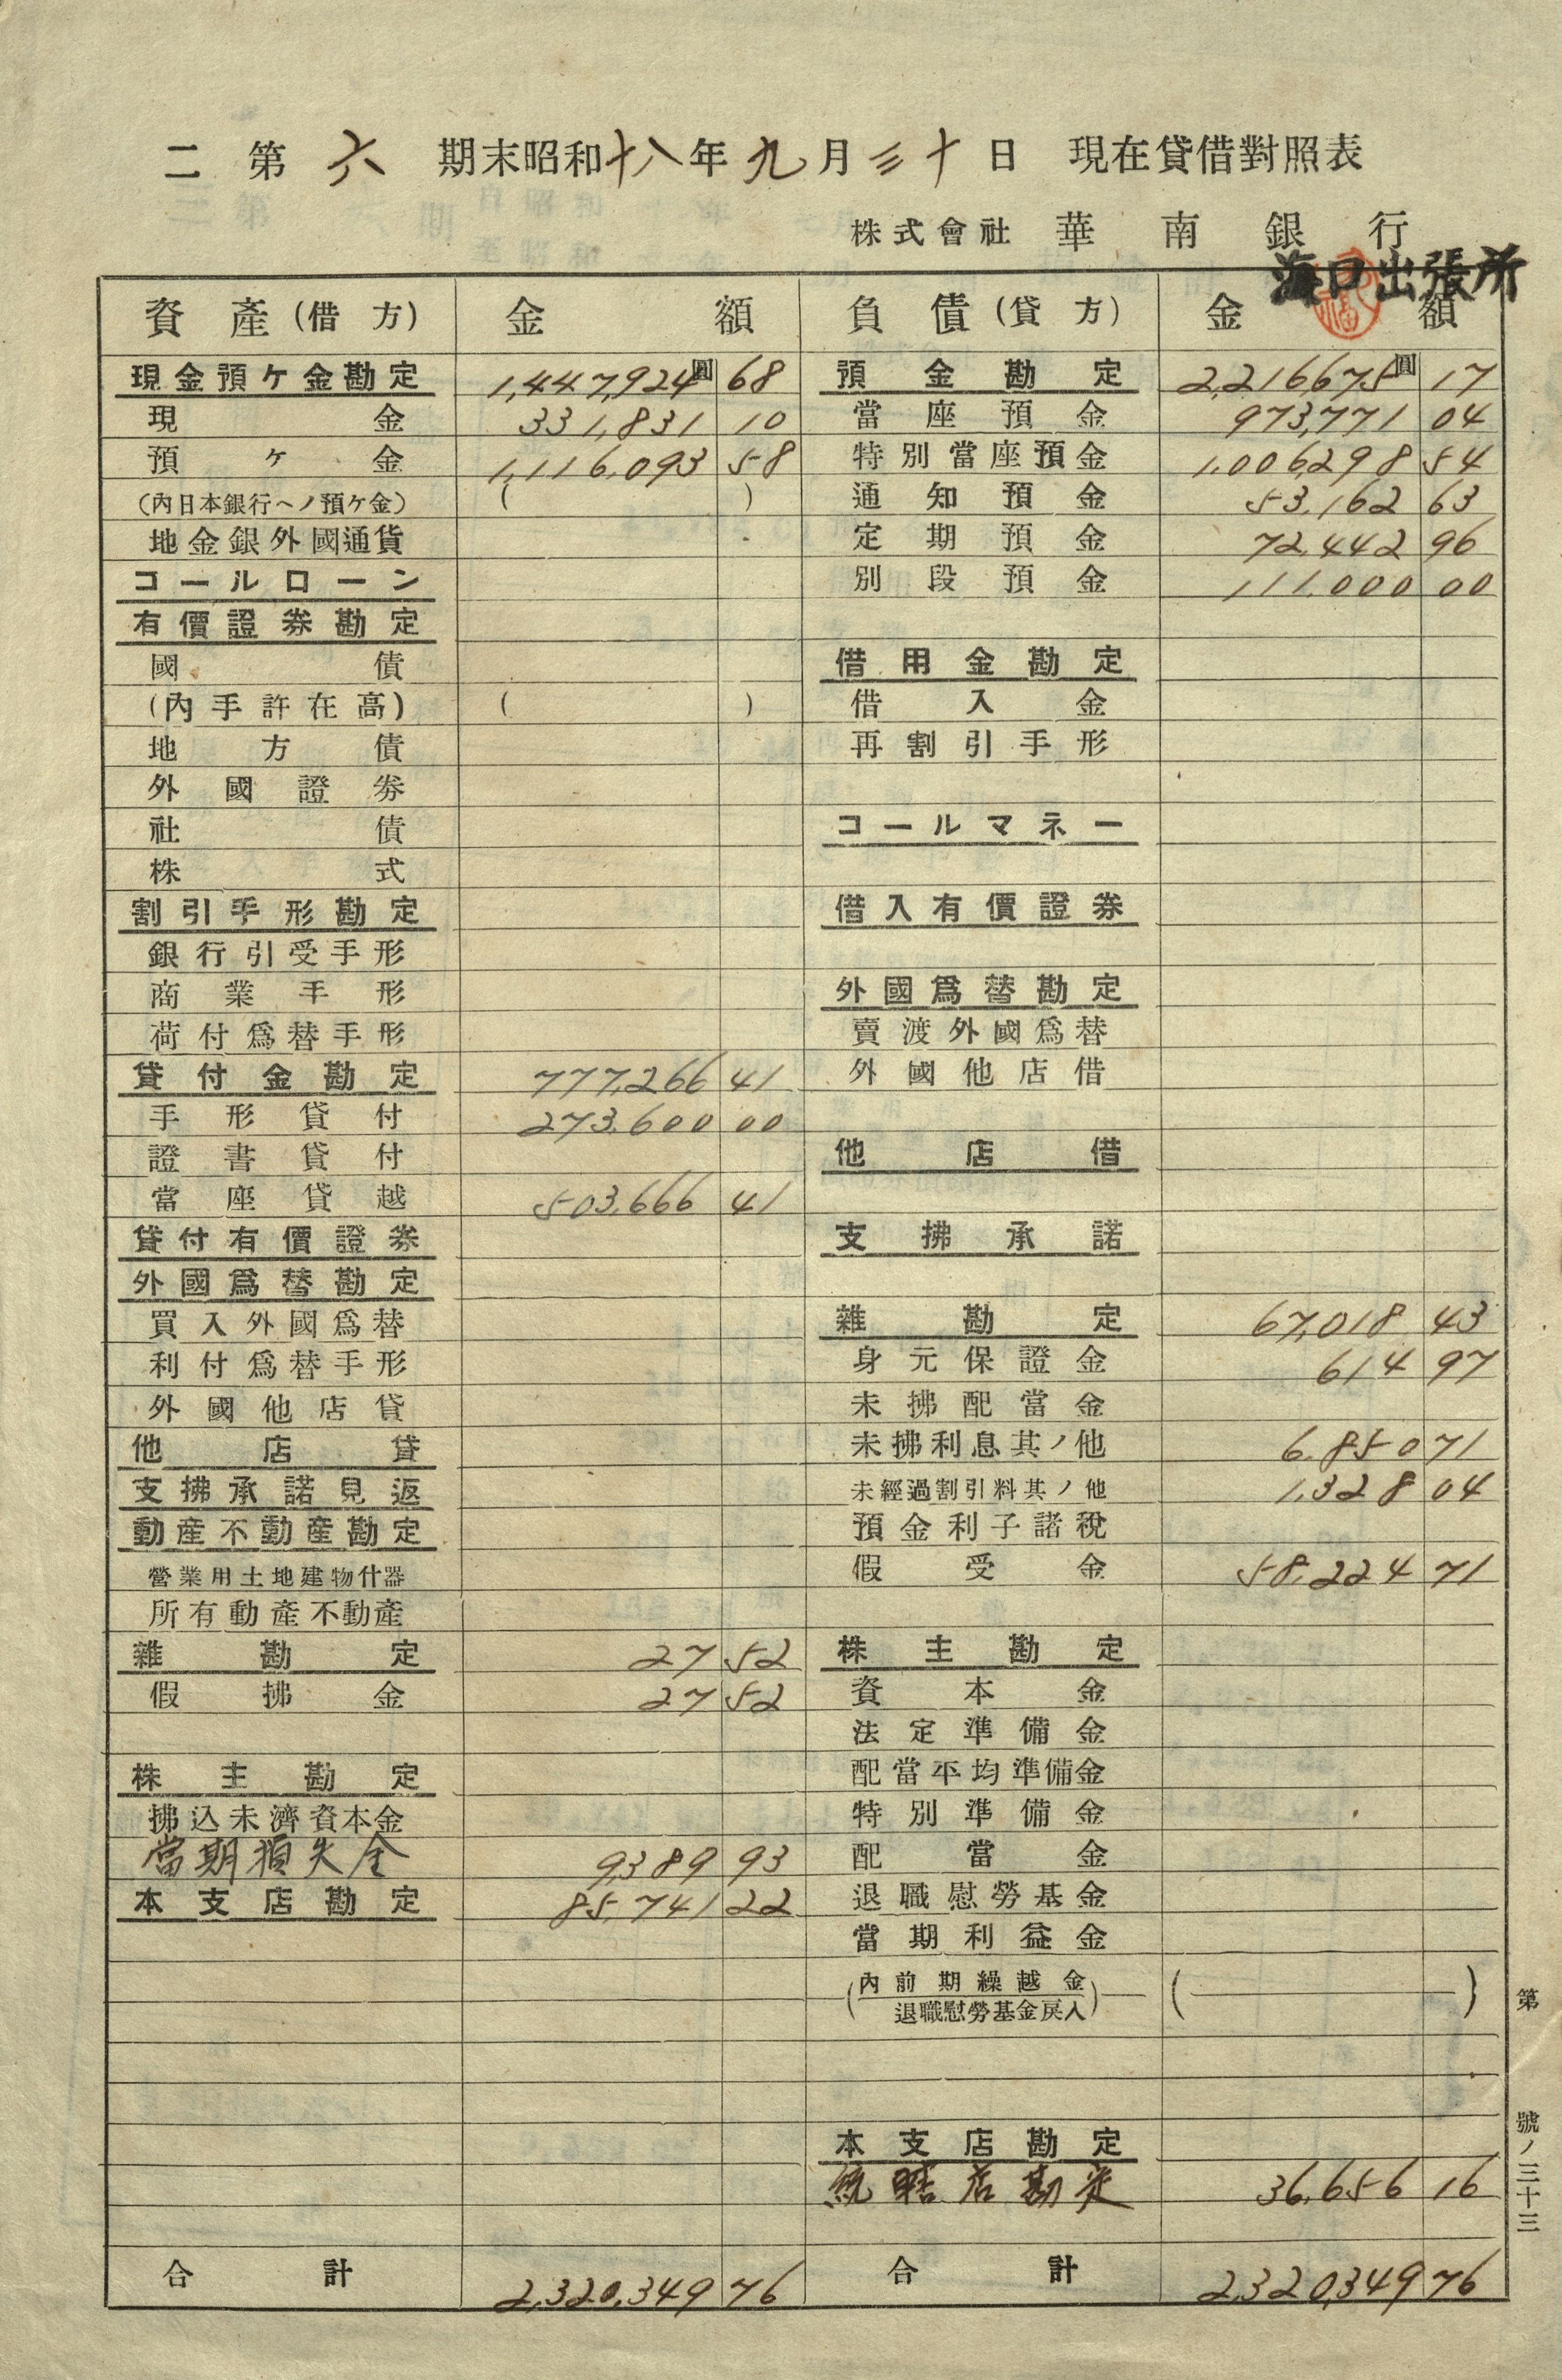 二 第 六 期末昭和十八年九月三十日 現在貸借對照表
株式會社 華南銀行
海口出張所
資產(借方) 金額 負債(貸方) 金額
現金預ケ金勘定 1,447,924圓 68 預金勘定 2,216,675圓 17
現金 331,831 10 當座預金 973,771 04
預ケ金 1,116,093 58 特別當座預金 1,006,298 54
(內日本銀行ヘノ預ケ金) ( ) 通知預金 53,162 63
地金銀外國通貨 定期預金 72,442 96
コールローン 別段預金 111,000 00
有價證券勘定
國債 借用金勘定
(內手許在高) ( ) 借入金
地方債 再割引手形
外國證券
社債 コールマネー
株式
割引手形勘定 借入有價證券
銀行引受手形
商業手形 外國爲替勘定
荷付爲替手形 賣渡外國爲替
貸付金勘定 777,266 41 外國他店借
手形貸付 273,600 00
證書貸付 他店借
當座貸越 503,666 41
貸付有價證券 支拂承諾
外國爲替勘定
買入外國爲替 雜勘定 67,018 43
利付爲替手形 身元保證金 614 97
外國他店貸 未拂配當金
他店貸 未拂利息其ノ他 6,850 71
支拂承諾見返 未經過割引料其ノ他 1,328 04
動產不動產勘定 預金利子諸稅
營業用土地建物什器 假受金 58,224 71
所有動產不動產
雜勘定 27 52 株主勘定
假拂金 27 52 資本金
法定準備金
株主勘定 配當平均準備金
拂込未濟資本金 特別準備金
當期損失金 9,389 93 配當金
本支店勘定 85,741 22 退職慰勞基金
當期利益金
(內前期繰越金 ( )
退職慰勞基金戾入)
本支店勘定
統轄店勘定 36,656 16
合計 2,320,349 76 合計 2,320,349 76
第 號ノ三十三